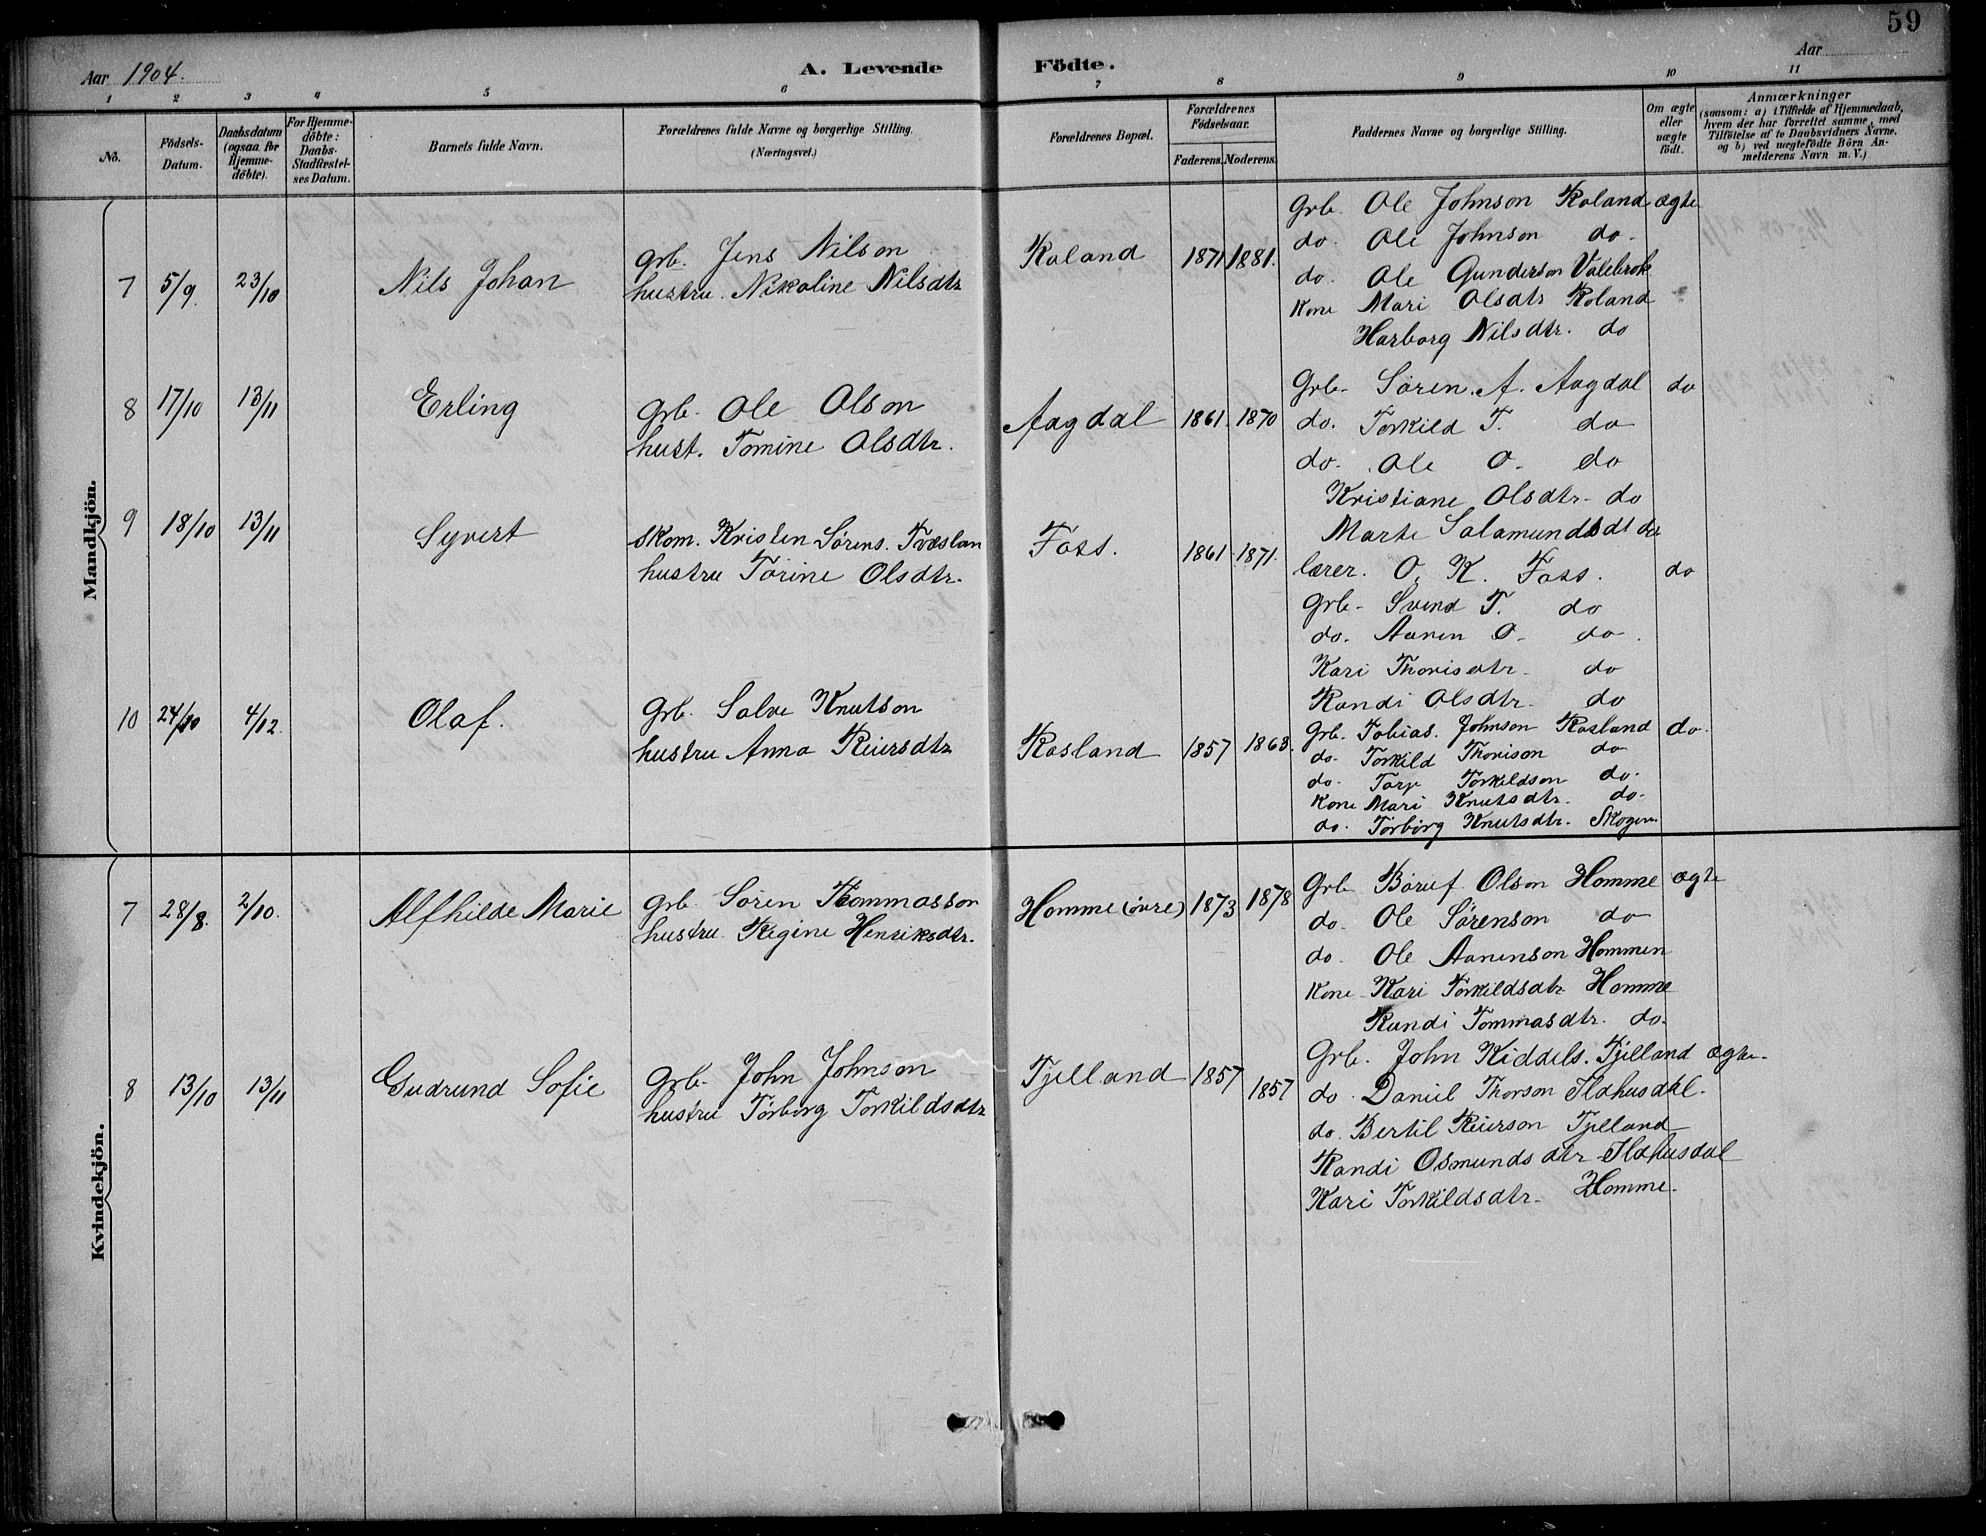 59
Aar 1904.
A. Levende Födte.
Aar
1 2 3 4 5 6 7 8 9 10 11
No.
Födsels-Datum.
Daabsdatum (ogsaa for Hjemme-döbte).
For Hjemme-döbte: Daabs-Stadfæstel-ses Datum.
Barnets fulde Navn.
Forældrenes fulde Navne og borgerlige Stilling.
(Næringsvei.)
Forældrenes Bopæl.
Forældrenes Födselsaar.
Faderens. Moderens.
Faddernes Navne og borgerlige Stilling.
Om ægte eller uægte födt.
Anmærkninger
(saasom: a) i Tilfælde af Hjemmedaab, hvem der har forrettet samme, med Tilföielse af to Daabsvidners Navne. og b) ved uægtefödte Börn An-melderens Navn m. V.)
Mandkjön.
7 5/9. 23/10 Nils Johan
grb. Jens Nilson
hustru. Nikoline Nilsdtr
Roland 1871 1881.
Grb. Ole Johnson Roland ægte
do. Ole Johnson do.
do. Ole Gunderson Valebrok
Kone Mari Olsdtr Roland
Harborg Nilsdtr. do
8 17/10 13/11 Erling
grb. Ole Olson
hust. Tomine Olsdtr.
Aagdal 1861. 1870
Grb. Sören. A. Aagdal do
do. Torkild T. do
do. Ole O. do
Kristiane Olsdtr. do
Marte Salamundsdt do
9 18/10 13/11 Syvert
Skom. Kristen Sörens. Tveslan
hustru Torine Olsdtr.
Foss. 1861 1871.
lærer. O. K. Foss. do
Grb. Svend T. do
do. Aanen O. do.
Kari Thorisdtr. do
Randi Olsdtr. do
10 24/10 4/12. Olaf.
Grb. Salve Knutson
hustru Anna Reiersdtr
Rosland 1857 1863.
Grb. Tobias. Johnson Rosland do.
do. Torkild Thorison do
do. Tarje Torkildson do.
Kone Mari Knutsdtr. do.
do. Torborg Knutsdtr. Skogen.
Kvindekjön.
7 28/8. 2/10. Alfhilde Marie
Grb. Sören Tommasson
hustru. Regine Henriksdtr.
Homme (övre) 1873 1878
Grb Böruf Olson Homme ægte
do. Ole Sörenson do
do. Ole Aanenson Hommen
Kone Kari Torkildsdtr Homme
Randi Tommasdtr. do.
8 13/10 13/11 Gudrund Sofie
Grb. John Johnson
hustru Torborg Torkildsdtr
Tjelland 1857 1857
Grb. John Kiddels. Tjelland ægte.
do. Daniel Thorson Ildhusdal.
do. Bertil Reierson Tjelland
Randi Osmundsdtr Ildhusdal
Kari Torkildsdtr. Homme.